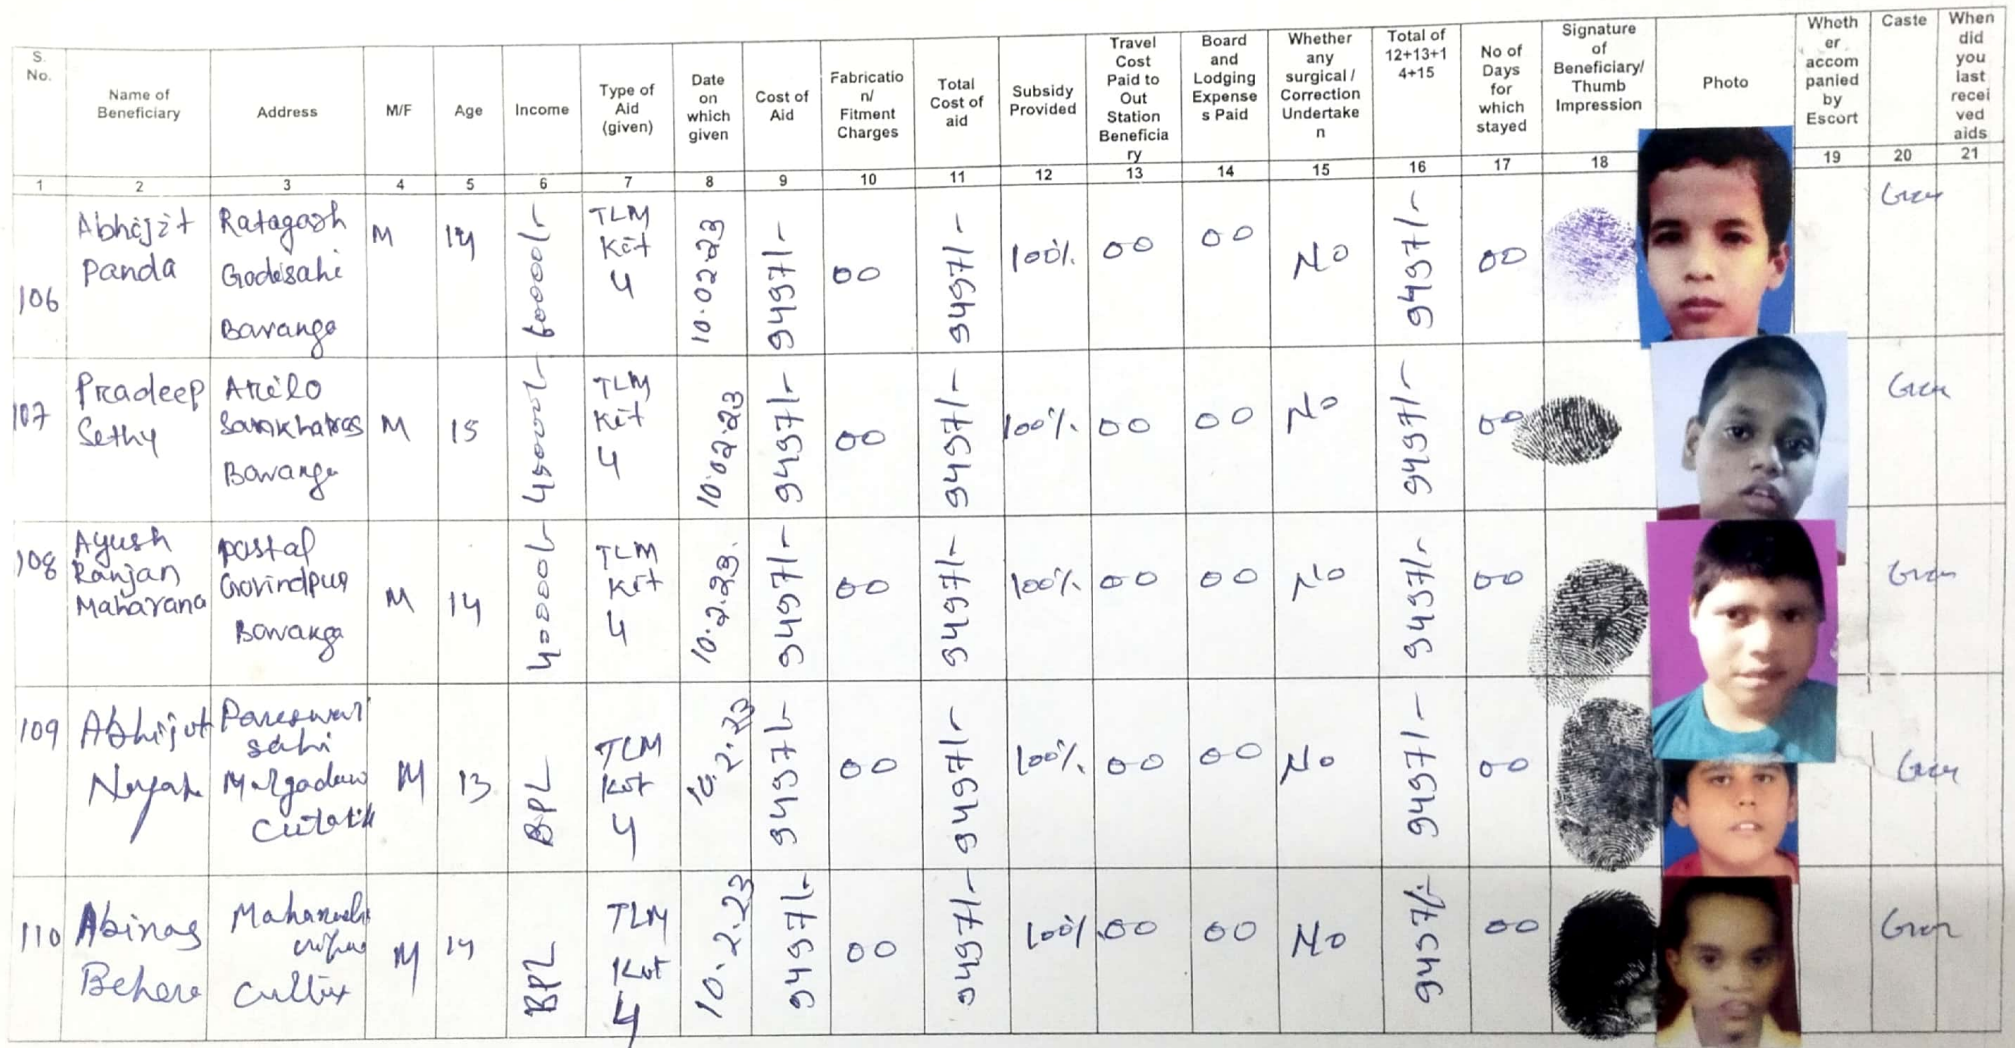 S. No.
Name of Beneficiary
Address
M/F
Age
Income
Type of Aid (given)
Date on which given
Cost of Aid
Fabricatio n/ Fitment Charges
Total Cost of aid
Subsidy Provided
Travel Cost Paid to Out Station Beneficia ry
Board and Lodging Expense s Paid
Whether any surgical / Correction Undertake n
Total of 12+13+1 4+15
No of Days for which stayed
Signature of Beneficiary/ Thumb Impression
Photo
Wheth er accom panied by Escort
Caste
When did you last recei ved aids
1 2 3 4 5 6 7 8 9 10 11 12 13 14 15 16 17 18 19 20 21
106 Abhijit Panda
Ratagarh Godisahi Baranga
M 14 60000/- TLM Kit 4 10.02.23 9497/- 00 9497/- 100% 00 00 No 9497/- 00 Gen
107 Pradeep Sethy
Arilo Baranga
M 15 TLM Kit 4 10.02.23 9497/- 00 9497/- 100% 00 00 No 9497/- 00 Gen
108 Ayush Ranjan Maharana
Govindpur Baranga
M 14 40000/- TLM Kit 4 10.2.23. 9497/- 00 9497/- 100% 00 00 No 9497/- 00 Gen
109 Abhijit Nayak
sahi
M 13 BPL TLM Kit 4 9497/- 00 9497/- 100% 00 00 No 9497/- 00 Gen
110 Abinas Behera
M 14 BPL TLM Kit 4 10.2.23 9497/- 00 9497/- 100% 00 00 No 9497/- 00 Gen